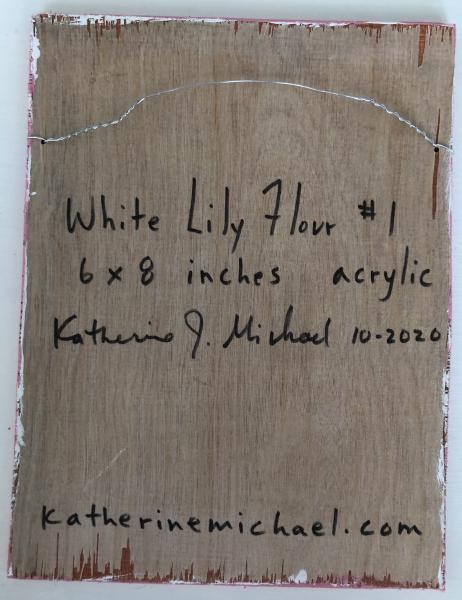 White Lily Flour #1
6 x 8 inches acrylic
Katherine J. Michael 10-2020
katherinemichael.com